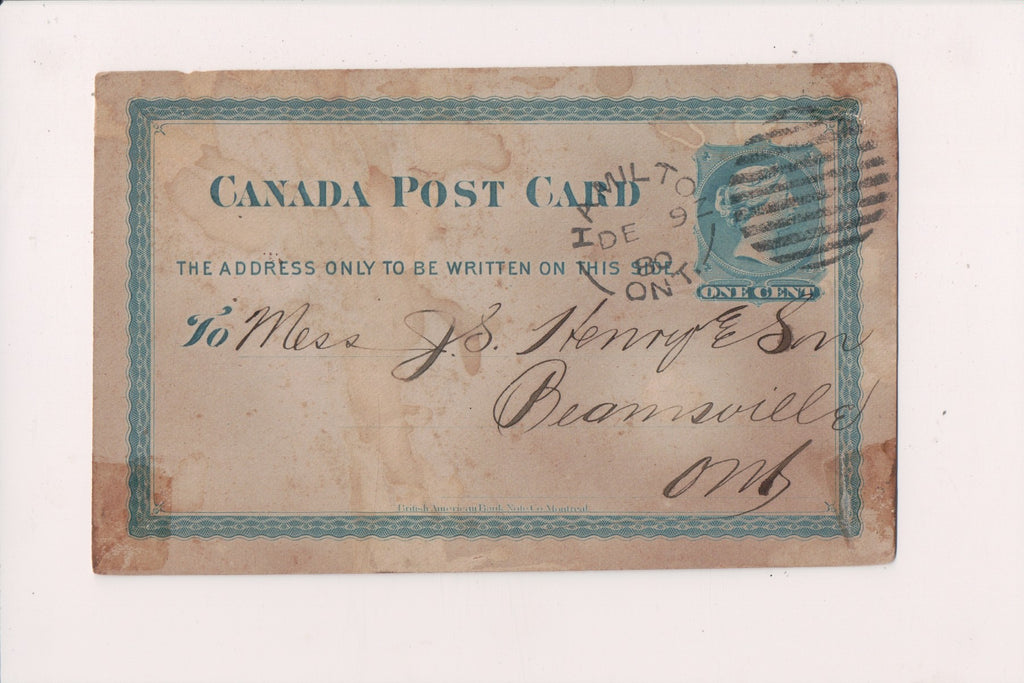 CANADA POST CARD
THE ADDRESS ONLY TO BE WRITTEN ON THIS SIDE
HAMILTON
DE 9
80
ONT.
ONE CENT
To Mess J. S. Henry & Son
Beamsville
Ont
British American Bank Note Co. Montreal.